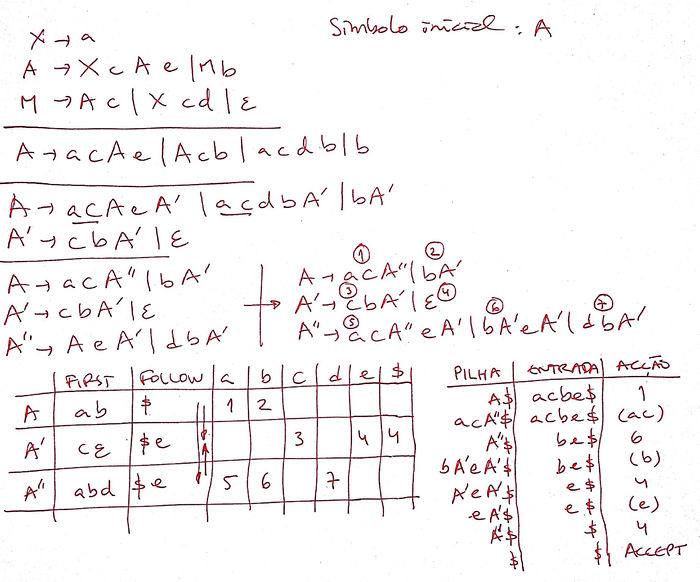 X → a
Símbolo inicial : A
A → X c A e | M b
M → A c | X c d | ε
A → a c A e | A c b | a c d b | b
A → a c A e A' | a c d b A' | b A'
A' → c b A' | ε
① ②
A → a c A" | b A'
A → a c A" | b A'
③ ④
A' → c b A' | ε
A' → c b A' | ε
⑤ ⑥ ⑦
A" → A e A' | d b A'
A" → a c A" e A' | b A' e A' | d b A'
FIRST FOLLOW a b c d e $
A ab $ 1 2
A' cε $ e 3 4 4
A" abd $ e 5 6 7
PILHA ENTRADA ACÇÃO
A$ acbe$ 1
acA"$ acbe$ (ac)
A"$ be$ 6
bA'eA'$ be$ (b)
A'eA'$ e$ 4
eA'$ e$ (e)
A'$ $ 4
$ $ ACCEPT